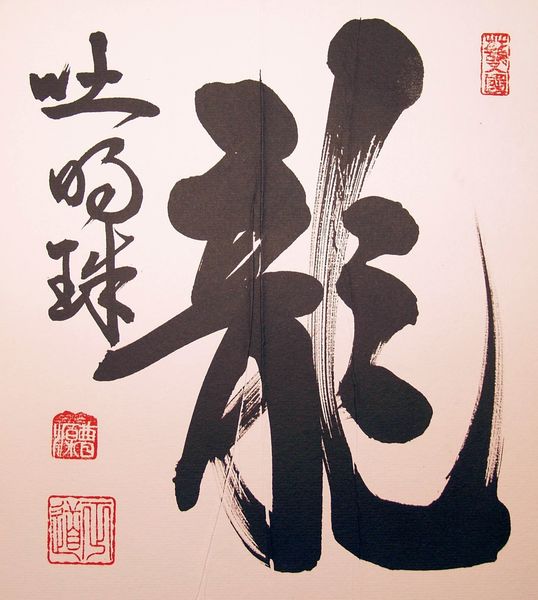 龍
吐明珠